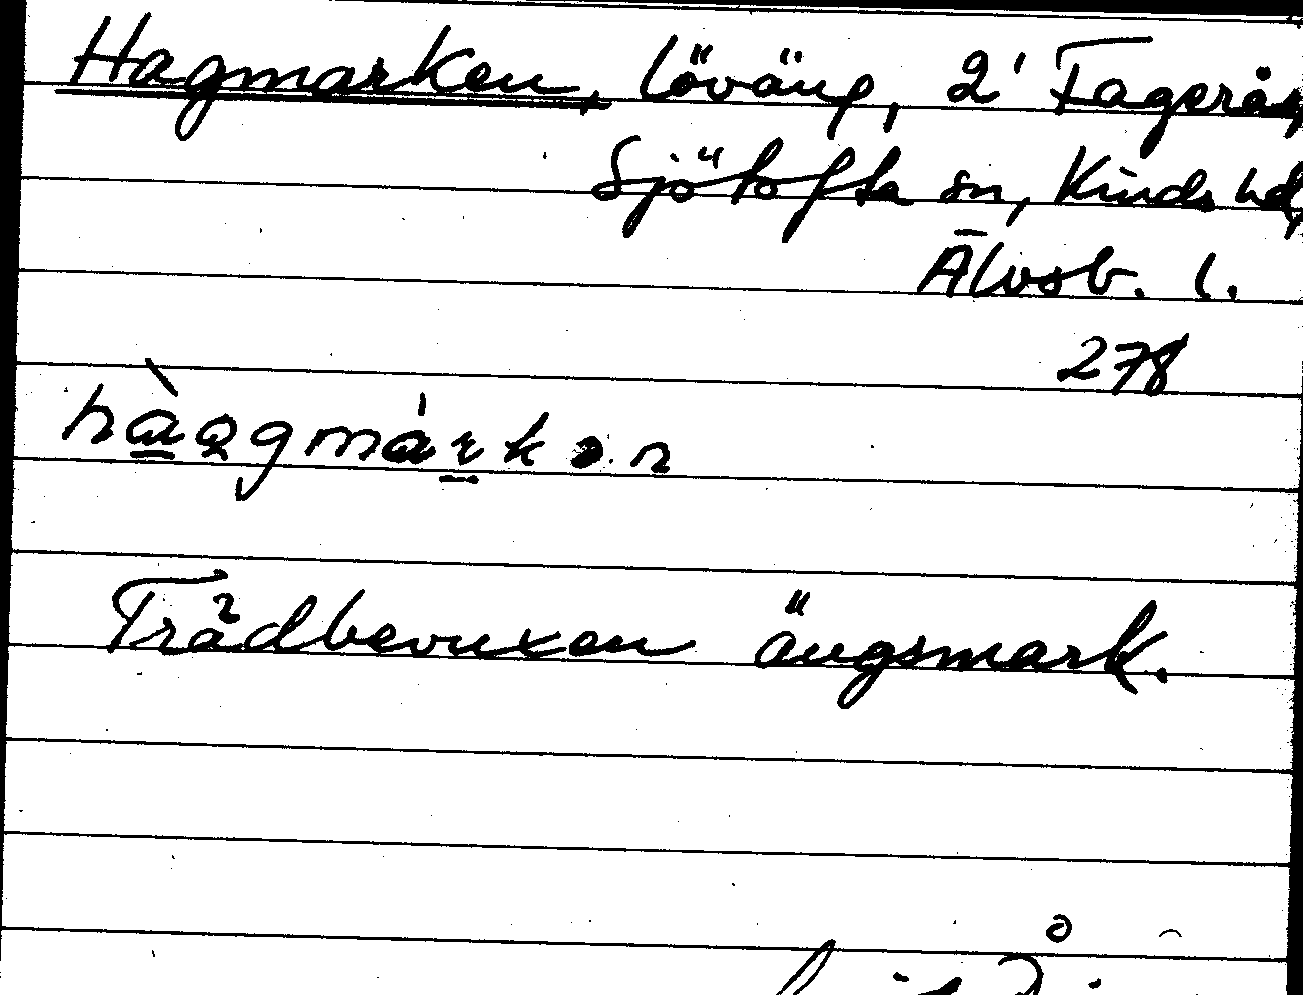 Hagmarken, löväng, 2' Fagerås,
Sjötofta sn, Kinds hd,
Älvsb. l.
278
Trädbevuxen ängsmark.